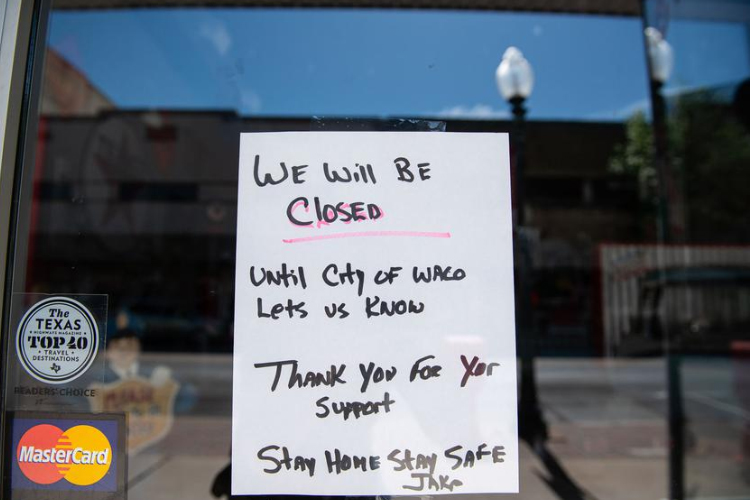 WE Will BE
ClOSED
Until City of WACO
Lets us KNOW
THANK YOU FOR YOr
Support
Stay HOME Stay SAFE
JAKe
The
TEXAS
HIGHWAYS MAGAZINE
TOP 40
TRAVEL
DESTINATIONS
READERS' CHOICE
MasterCard